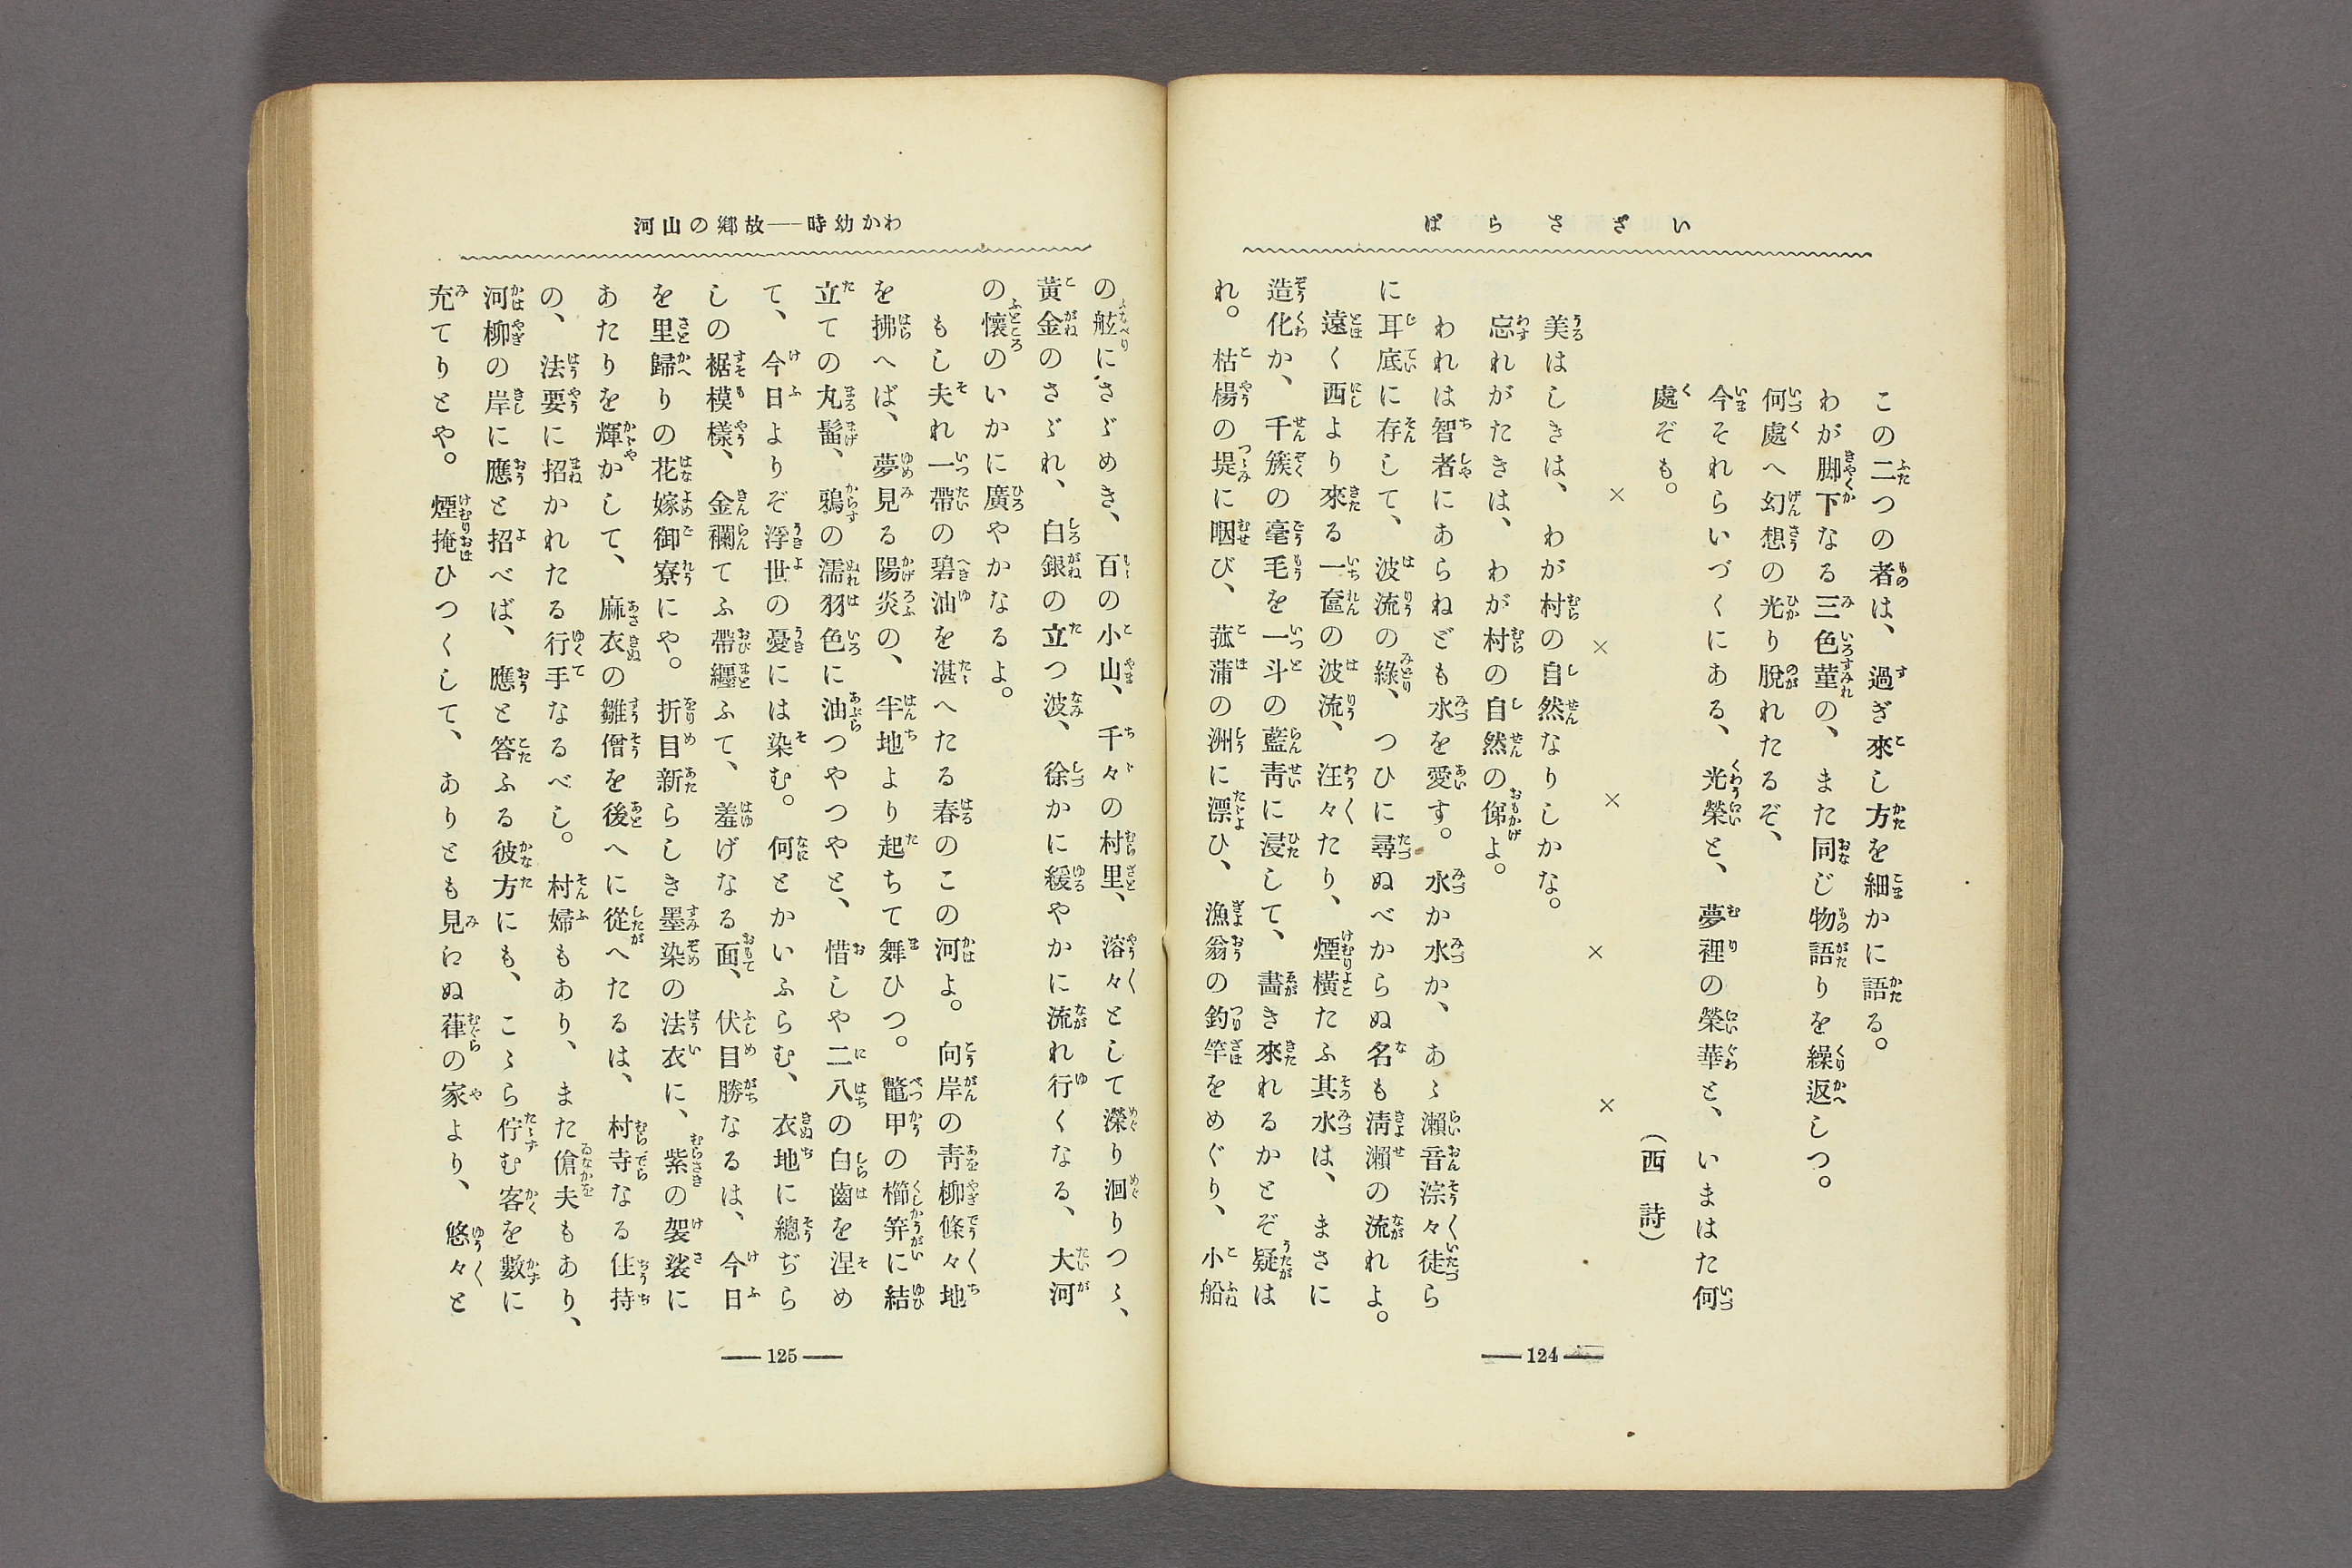 いざさらば
この二つの者は、過ぎ來し方を細かに語る。
わが脚下なる三色菫の、また同じ物語りを繰返しつ。
何處へ幻想の光り脱れたるぞ、
今それらいづくにある、光榮と、夢裡の榮華と、いまはた何
處ぞも。
(西詩)
× × × × ×
美はしきは、わが村の自然なりしかな。
忘れがたきは、わが村の自然の俤よ。
われは智者にあらねども水を愛す。水か水か、あゝ瀨音淙々徒ら
に耳底に存して、波流の綠、つひに尋ぬべからぬ名も淸瀨の流れよ。
遠く西より來る一奩の波流、汪々たり、煙橫たふ其水は、まさに
造化か、千簇の毫毛を一斗の藍靑に浸して、畵き來れるかとぞ疑は
れ。枯楊の堤に咽び、菰蒲の洲に漂ひ、漁翁の釣竿をめぐり、小船
124
わか幼時──故鄕の山河
の舷にさゞめき、百の小山、千々の村里、溶々として瀠り洄りつゝ、
黃金のさゞれ、白銀の立つ波、徐かに緩やかに流れ行くなる、大河
の懷のいかに廣やかなるよ。
もし夫れ一帶の碧油を湛へたる春のこの河よ。向岸の靑柳條々地
を拂へば、夢見る陽炎の、半地より起ちて舞ひつ。鼈甲の櫛笄に結
立ての丸髷、鴉の濡羽色に油つやつやと、惜しや二八の白齒を涅め
て、今日よりぞ浮世の憂には染む。何とかいふらむ、衣地に總ぢら
しの裾模樣、金襴てふ帶纒ふて、羞げなる面、伏目勝なるは、今日
を里歸りの花嫁御寮にや。折目新らしき墨染の法衣に、紫の袈裟に
あたりを輝かして、麻衣の雛僧を後へに從へたるは、村寺なる住持
の、法要に招かれたる行手なるべし。村婦もあり、また傖夫もあり、
河柳の岸に應と招べば、應と答ふる彼方にも、こゝら佇む客を數に
充てりとや。煙掩ひつくして、ありとも見えぬ葎の家より、悠々と
125